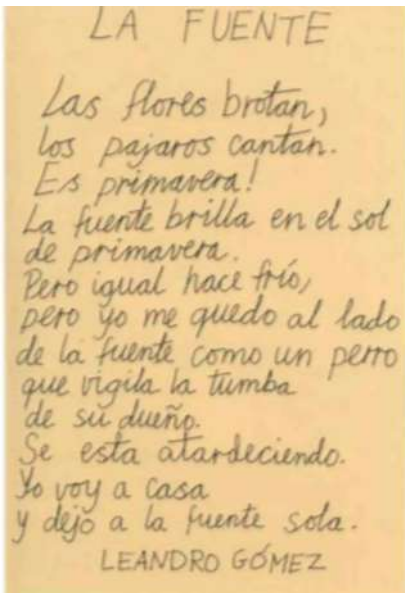 LA FUENTE
Las flores brotan,
los pajaros cantan.
Es primavera!
La fuente brilla en el sol
de primavera.
Pero igual hace frío,
pero yo me quedo al lado
de la fuente como un perro
que vigila la tumba
de su dueño.
Se esta atardeciendo.
Yo voy a casa
y dejo a la fuente sola.
LEANDRO GÓMEZ